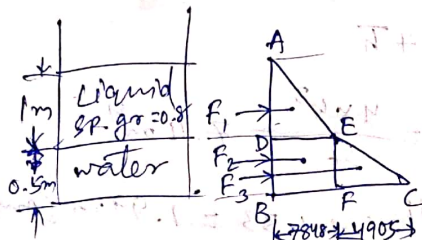 1m
Liquid
SP.gr=0.8
water
0.5m
A
F₁
D
E
F₂
F₃
B
F
C
7848
4905